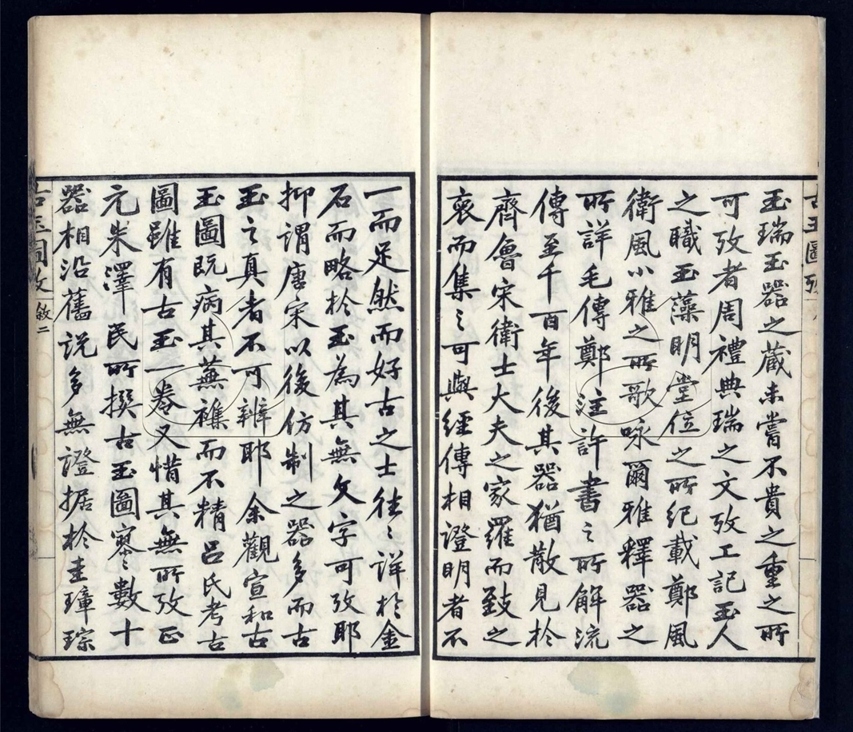 玉瑞玉器之藏未嘗不貴之重之所
可攷者周禮典瑞之文攷工記玉人
之職玉藻明堂位之所紀載鄭風
衛風小雅之所歌咏爾雅釋器之
所詳毛傳鄭注許書之所解流
傳至千百年後其器猶散見於
齊魯宋衛士大夫之家羅而致之
裒而集之可與經傳相證明者不
一而足然而好古之士往〻詳於金
石而略於玉為其無文字可攷耶
抑謂唐宋以後仿制之器多而古
玉之真者不可辨耶余觀宣和古
玉圖既病其蕪雜而不精呂氏考古
圖雖有古玉一卷又惜其無所攷正
元朱澤民所撰古玉圖寥〻數十
器相沿舊說多無證据於圭璋琮
古玉圖攷
敘二